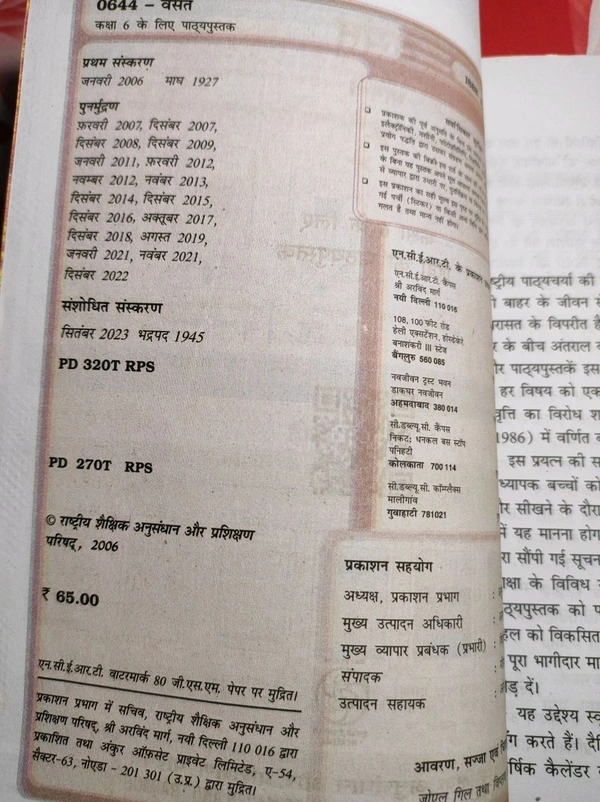 0644 – वसंत
कक्षा 6 के लिए पाठ्यपुस्तक
प्रथम संस्करण
जनवरी 2006 माघ 1927
पुनर्मुद्रण
फ़रवरी 2007, दिसंबर 2007,
दिसंबर 2008, दिसंबर 2009,
जनवरी 2011, फ़रवरी 2012,
नवम्बर 2012, नवंबर 2013,
दिसंबर 2014, दिसंबर 2015,
दिसंबर 2016, अक्तूबर 2017,
दिसंबर 2018, अगस्त 2019,
जनवरी 2021, नवंबर 2021,
दिसंबर 2022
संशोधित संस्करण
सितंबर 2023 भद्रपद 1945
PD 320T RPS
PD 270T RPS
© राष्ट्रीय शैक्षिक अनुसंधान और प्रशिक्षण
परिषद्, 2006
₹ 65.00
एन.सी.ई.आर.टी. वाटरमार्क 80 जी.एस.एम. पेपर पर मुद्रित।
प्रकाशन प्रभाग में सचिव, राष्ट्रीय शैक्षिक अनुसंधान और
प्रशिक्षण परिषद्, श्री अरविंद मार्ग, नयी दिल्ली 110 016 द्वारा
प्रकाशित तथा अंकुर ऑफ़सेट प्राइवेट लिमिटेड, ए-54,
सैक्टर-63, नोएडा - 201 301 (उ.प्र.) द्वारा मुद्रित।
प्रकाशक की पूर्व अनुमति के बिना
इस पुस्तक की बिक्री इस शर्त
के बिना यह पुस्तक अपने
इस प्रकाशन का सही मूल्य इस
गई पर्ची (स्टिकर) या किसी
गलत है तथा मान्य नहीं होगा।
एन.सी.ई.आर.टी. के प्रकाशन
एन.सी.ई.आर.टी. कैंपस
श्री अरविंद मार्ग
नयी दिल्ली 110 016
108, 100 फीट रोड
हेली एक्सटेंशन, होस्डेकेरे
बनाशंकरी III स्टेज
बैंगलुरु 560 085
नवजीवन ट्रस्ट भवन
डाकघर नवजीवन
अहमदाबाद 380 014
सी.डब्ल्यू.सी. कैंपस
निकट: धनकल बस स्टॉप
पनिहटी
कोलकाता 700 114
सी.डब्ल्यू.सी. कॉम्प्लैक्स
मालीगांव
गुवाहाटी 781021
प्रकाशन सहयोग
अध्यक्ष, प्रकाशन प्रभाग :
मुख्य उत्पादन अधिकारी :
मुख्य व्यापार प्रबंधक (प्रभारी) :
संपादक :
उत्पादन सहायक :
आवरण, सज्जा एवं
जोएल गिल तथा
पाठ्यचर्या की
बाहर के जीवन से
के विपरीत है
के बीच अंतराल
पाठ्यपुस्तकें इस
हर विषय को एक
का विरोध
1986) में वर्णित
इस प्रयत्न की
बच्चों को
सीखने के दौरा
यह मानना होग
सौंपी गई सूचन
के विविध
को
को विकसित
पूरा भागीदार मा
दें।
यह उद्देश्य स्व
करते हैं। दै
कैलेंडर